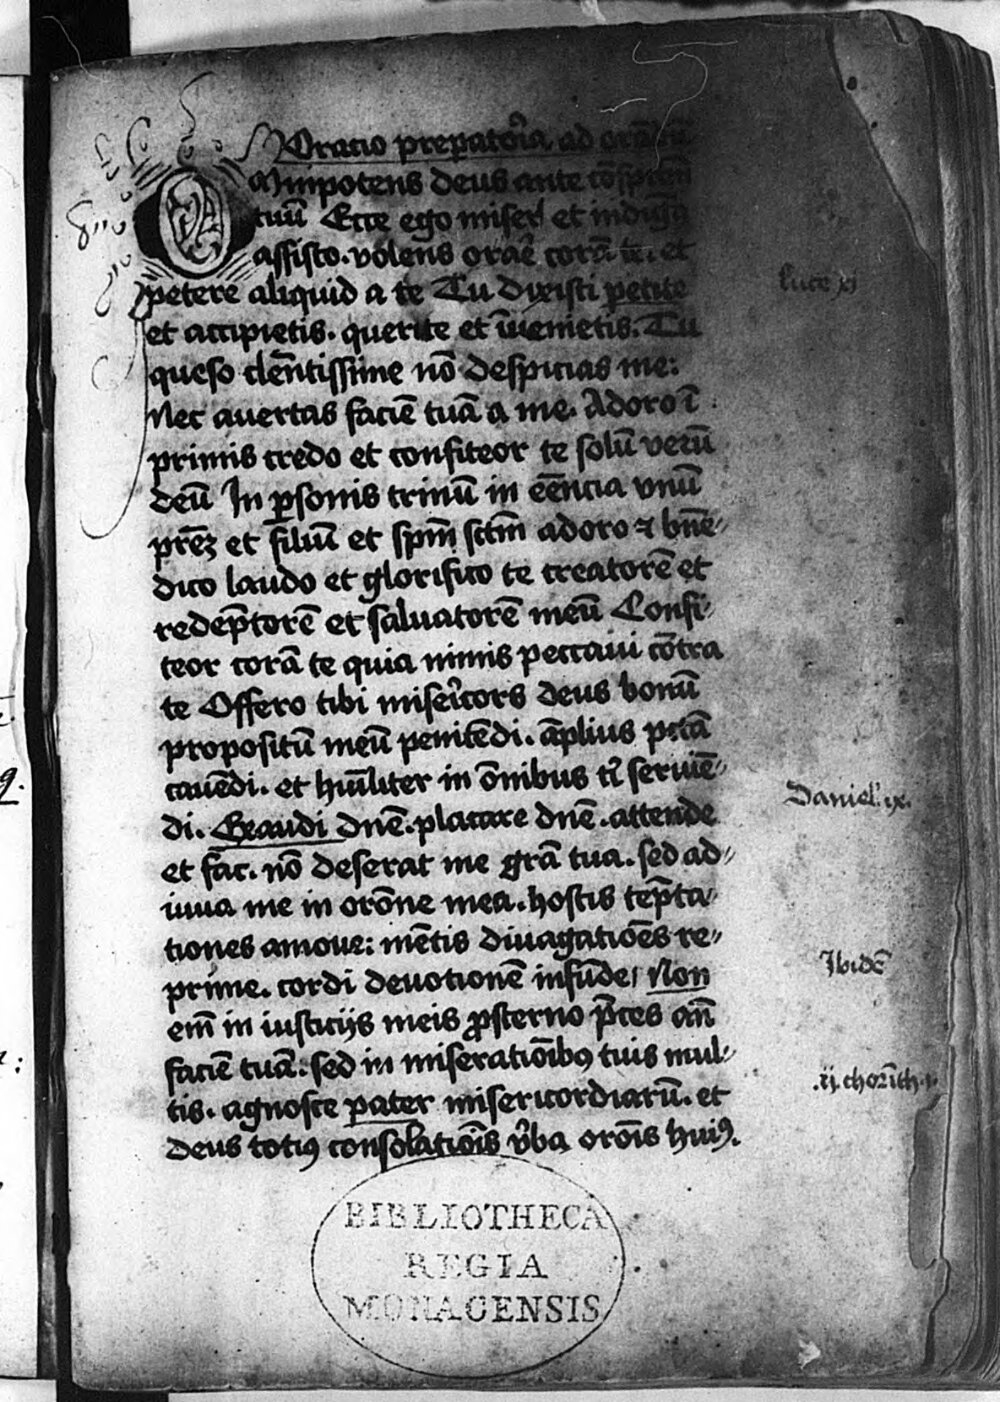 Oratio preparatoria ad orandū
Omnipotens deus ante cōspectū
tuū Ecce ego miser et indignus
assisto. volens orare corā te. et
petere aliquid a te Tu dixisti petite
et accipietis. querite et īuenietis. Tu
queso clēntissime nō despicias me:
Nec auertas faciē tuā a me. Adoro ī
primis credo et confiteor te solū verū
deū In psonis trinū in eēncia vnū
prēz et filiū et spm̄ sctm̄ adoro ⁊ bn̄e〃
dico laudo et glorifico te creatorē et
redēptorē et saluatorē meū Confi〃
teor corā te quia nimis peccaui cōtra
te Offero tibi misericors deus bonū
propositū meū penitēdi. āplius pctā
cauēdi. et hūiliter in ōnibus ti seruiē〃
di. Exaudi dnē. placare dnē. attende
et fac. nō deserat me grā tua. sed ad〃
iuua me in orōne mea. hostis tēpta〃
tiones amoue: mētis diuagatiōes re〃
prime. cordi deuotionē infūde/ Non
em̄ in iusticijs meis ꝓsterno p̄ces an̄
faciē tuā: sed in miseratiōibꝰ tuis mul〃
tis. agnosce pater misericordiarū. et
deus totiꝰ consolatiōis v̄ba orōis huiꝰ.
luce xi
Daniel. ix.
Ibidē
.ij. chorīth. i.
BIBLIOTHECA
REGIA
MONACENSIS